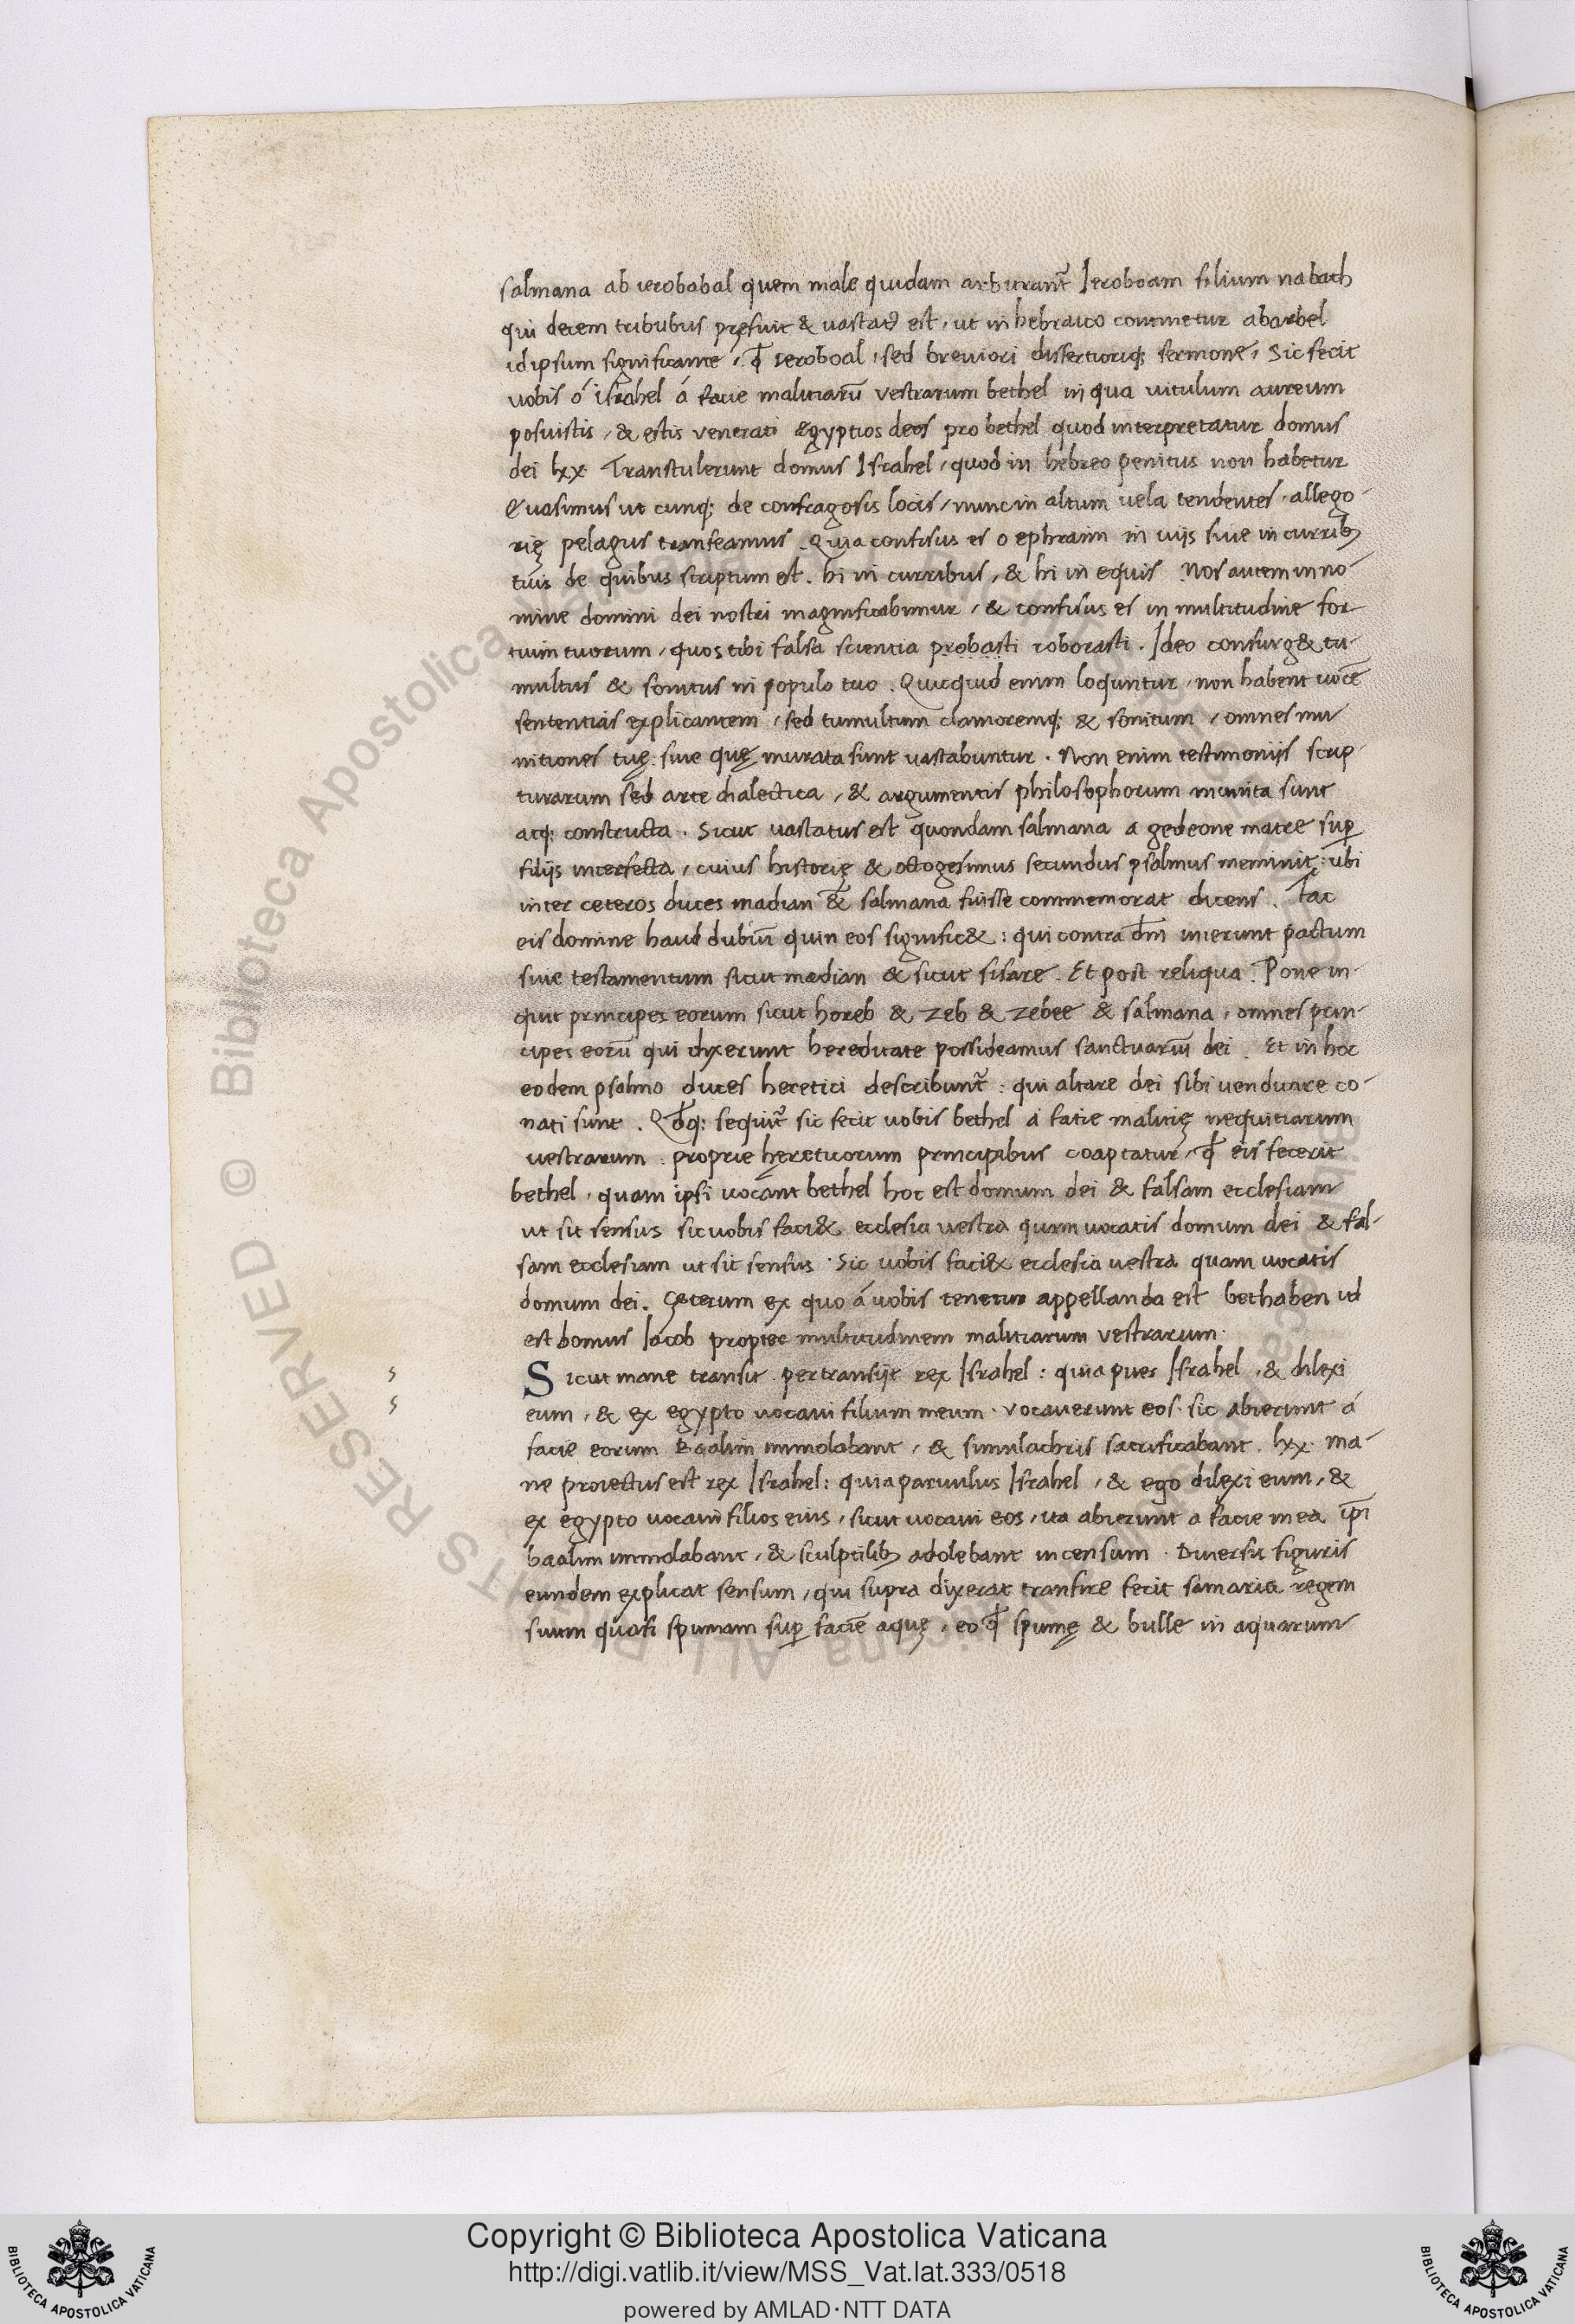 salmana ab ierobabal quem male quidam arbitrant̃ Ieroboam filium nabath
qui decem tribubus pręfuit & vastatꝰ est, ut in hebraico continetur abarbel
id ipsum significante, ꝙ ieroboal, sed breviori dissertiorıq; sermone, Sic fecit
vobis ó israhel á facie malitiarũ vestrarum bethel in qua vitulum aureum
posuistis, & estis venerati egyptios deos pro bethel quod interpretatur domus
dei lxx Transtulerunt domus Israhel, quod in hebreo penitus non habetur
Evasimus ut cunq; de confragosis locis, nunc in altum vela tendentes, allego-
rię pelagus transeamus. Quia confisus es o ephraim in vijs sive in curribꝫ
tuis de quibus scriptum est. hi in curribus, & hi in equis Nos autem in no-
mine domini dei nostri magnificabimur, & confisus es in multitudine for
tium tuorum, quos tibi falsa scientia probasti roborasti. Ideo consurg& tu-
multus & sonitus in populo tuo. Quicquid enim loquntur, non habent vocẽ
sententias explicantem, sed tumultum clamoremq; & sonitum, omnes mu
nitiones tuę: sive quę murata sunt vastabuntur. Non enim testimonijs scrip-
turarum sed arte dialectica, & argumentis philosophorum munita sunt
atq; constructa. Sicut vastatus est quondam salmana a gedeone matre sup̱
filijs interfecta, cuius historię & octogesimus secundus psalmus meminit: ubi
inter ceteros duces madian & salmana fuisse commemorat dicens. Fac
eis domine haud dubiũ quin eos signific&: qui contra dm̃ inierunt pactum
sive testamentum sicut madian & sicut sisare. Et post reliqua. Pone in-
quit principes eorum sicut horeb & zeb & zebee & salmana, omnes prin-
cipes eorũ qui dixerunt hereditate possideamus sanctuariũ dei. Et in hoc
eodem psalmo duces heretici describunt̃: qui altare dei sibi vendicare co-
nati sunt. Qdq̃; sequit̃ sic fecit vobis bethel á facie malitię nequitiarum
vestrarum: proprie hęreticorum principibus coaptatur, ꝙ eis fecerit
bethel, quam ipsi vocant bethel hoc est domum dei & falsam ecclesiam
ut sit sensus sic vobis faci& ecclesia vestra quam vocatis domum dei & fal-
sam ecclesiam ut sit sensus. Sic vobis faci& ecclesia vestra quam vocatis
domum dei. Ceterum ex quo á vobis tenetur appellanda est bethaben id
est domus Iacob propter multitudinem malitiarum vestrarum.
Sicut mane transit pertransijt rex Israhel: quia puer Israhel, & dilexi
eum, & ex egypto vocavi filium meum. vocaverunt eos. sic abierunt á
facie eorum Baalim immolabant, & simulachris sacrificabant. lxx. ma-
ne proiectus est rex Israhel: quia parvulus Israhel, & ego dilexi eum, &
ex egypto vocavi filios eius, sicut vocavi eos, ita abierunt a facie mea ip̃i
baalim immolabant, & sculptilibꝫ adolebant incensum. Diversis figuris
eundem explicat sensum, qui supra dixerat transire fecit samaria regem
suum quasi spumam sup̱ faciẽ aquę, eo ꝙ spumę & bulle in aquarum
Copyright © Biblioteca Apostolica Vaticana
http://digi.vatlib.it/view/MSS_Vat.lat.333/0518
powered by AMLAD·NTT DATA